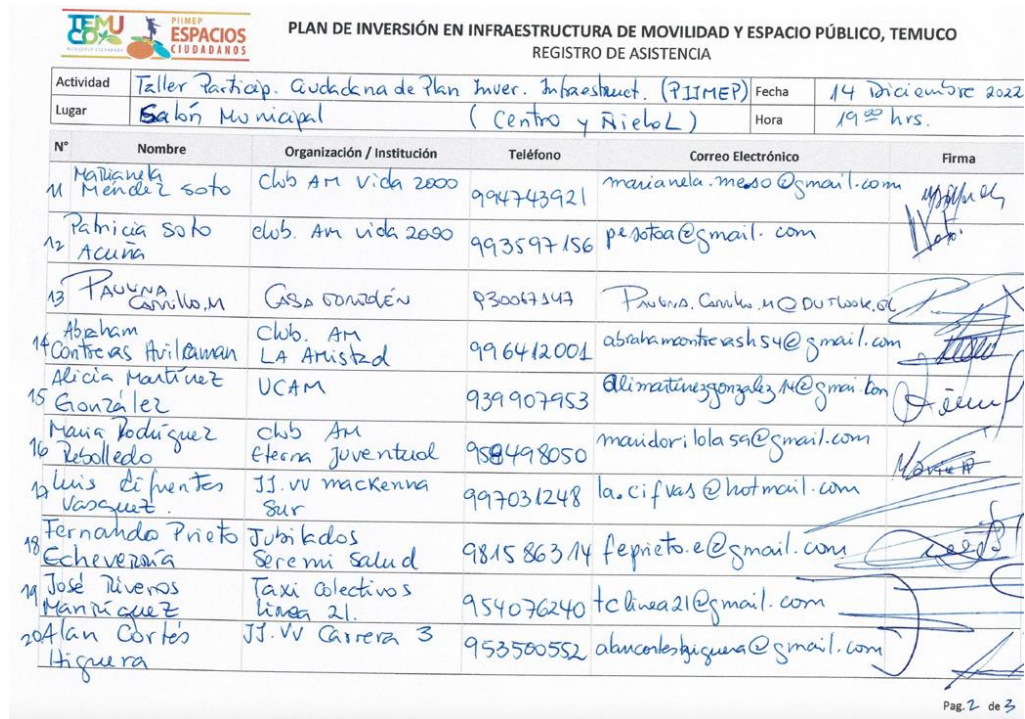 TEMUCO
PIIMEP
ESPACIOS
CIUDADANOS
PLAN DE INVERSIÓN EN INFRAESTRUCTURA DE MOVILIDAD Y ESPACIO PÚBLICO, TEMUCO
REGISTRO DE ASISTENCIA
Actividad Taller Particip. Ciudadana de Plan Inver. Infraestruct. (PIIMEP) Fecha 14 Diciembre 2022
Lugar Salón Municipal (Centro y Ñielol) Hora 19 00 hrs.
N° Nombre Organización / Institución Teléfono Correo Electrónico Firma
11 Marianela Méndez Soto Club AM Vida 2000 994743921 marianela.meso@gmail.com
12 Patricia Soto Acuña club. AM vida 2000 993597156 pesotoa@gmail.com
13 Paulina Carrillo.M Casa 930067147
14 Abraham Contreras Avilraman Club. AM LA Amistad 996412001 abrahamcontrerash54@gmail.com
15 Alicia Martínez González UCAM 939907953 alimartinezgonzalez14@gmai.com
16 Maria Rodríguez Rebolledo Club AM Eterna Juventud 958498050 maridorilola59@gmail.com
17 Luis Cifuentes Vasquez. JJ.VV mackenna Sur 997031248 la.cifvas@hotmail.com
18 Fernando Prieto Echeverría Jubilados Seremi Salud 981586314 feprieto.e@gmail.com
19 José Riveros Manríquez Taxi Colectivos Linea 21. 954076240 tclinea21@gmail.com
20 Alan Cortés Higuera JJ.VV Carrera 3 953500552 alancorteshiguera@gmail.com
Pag. 2 de 3